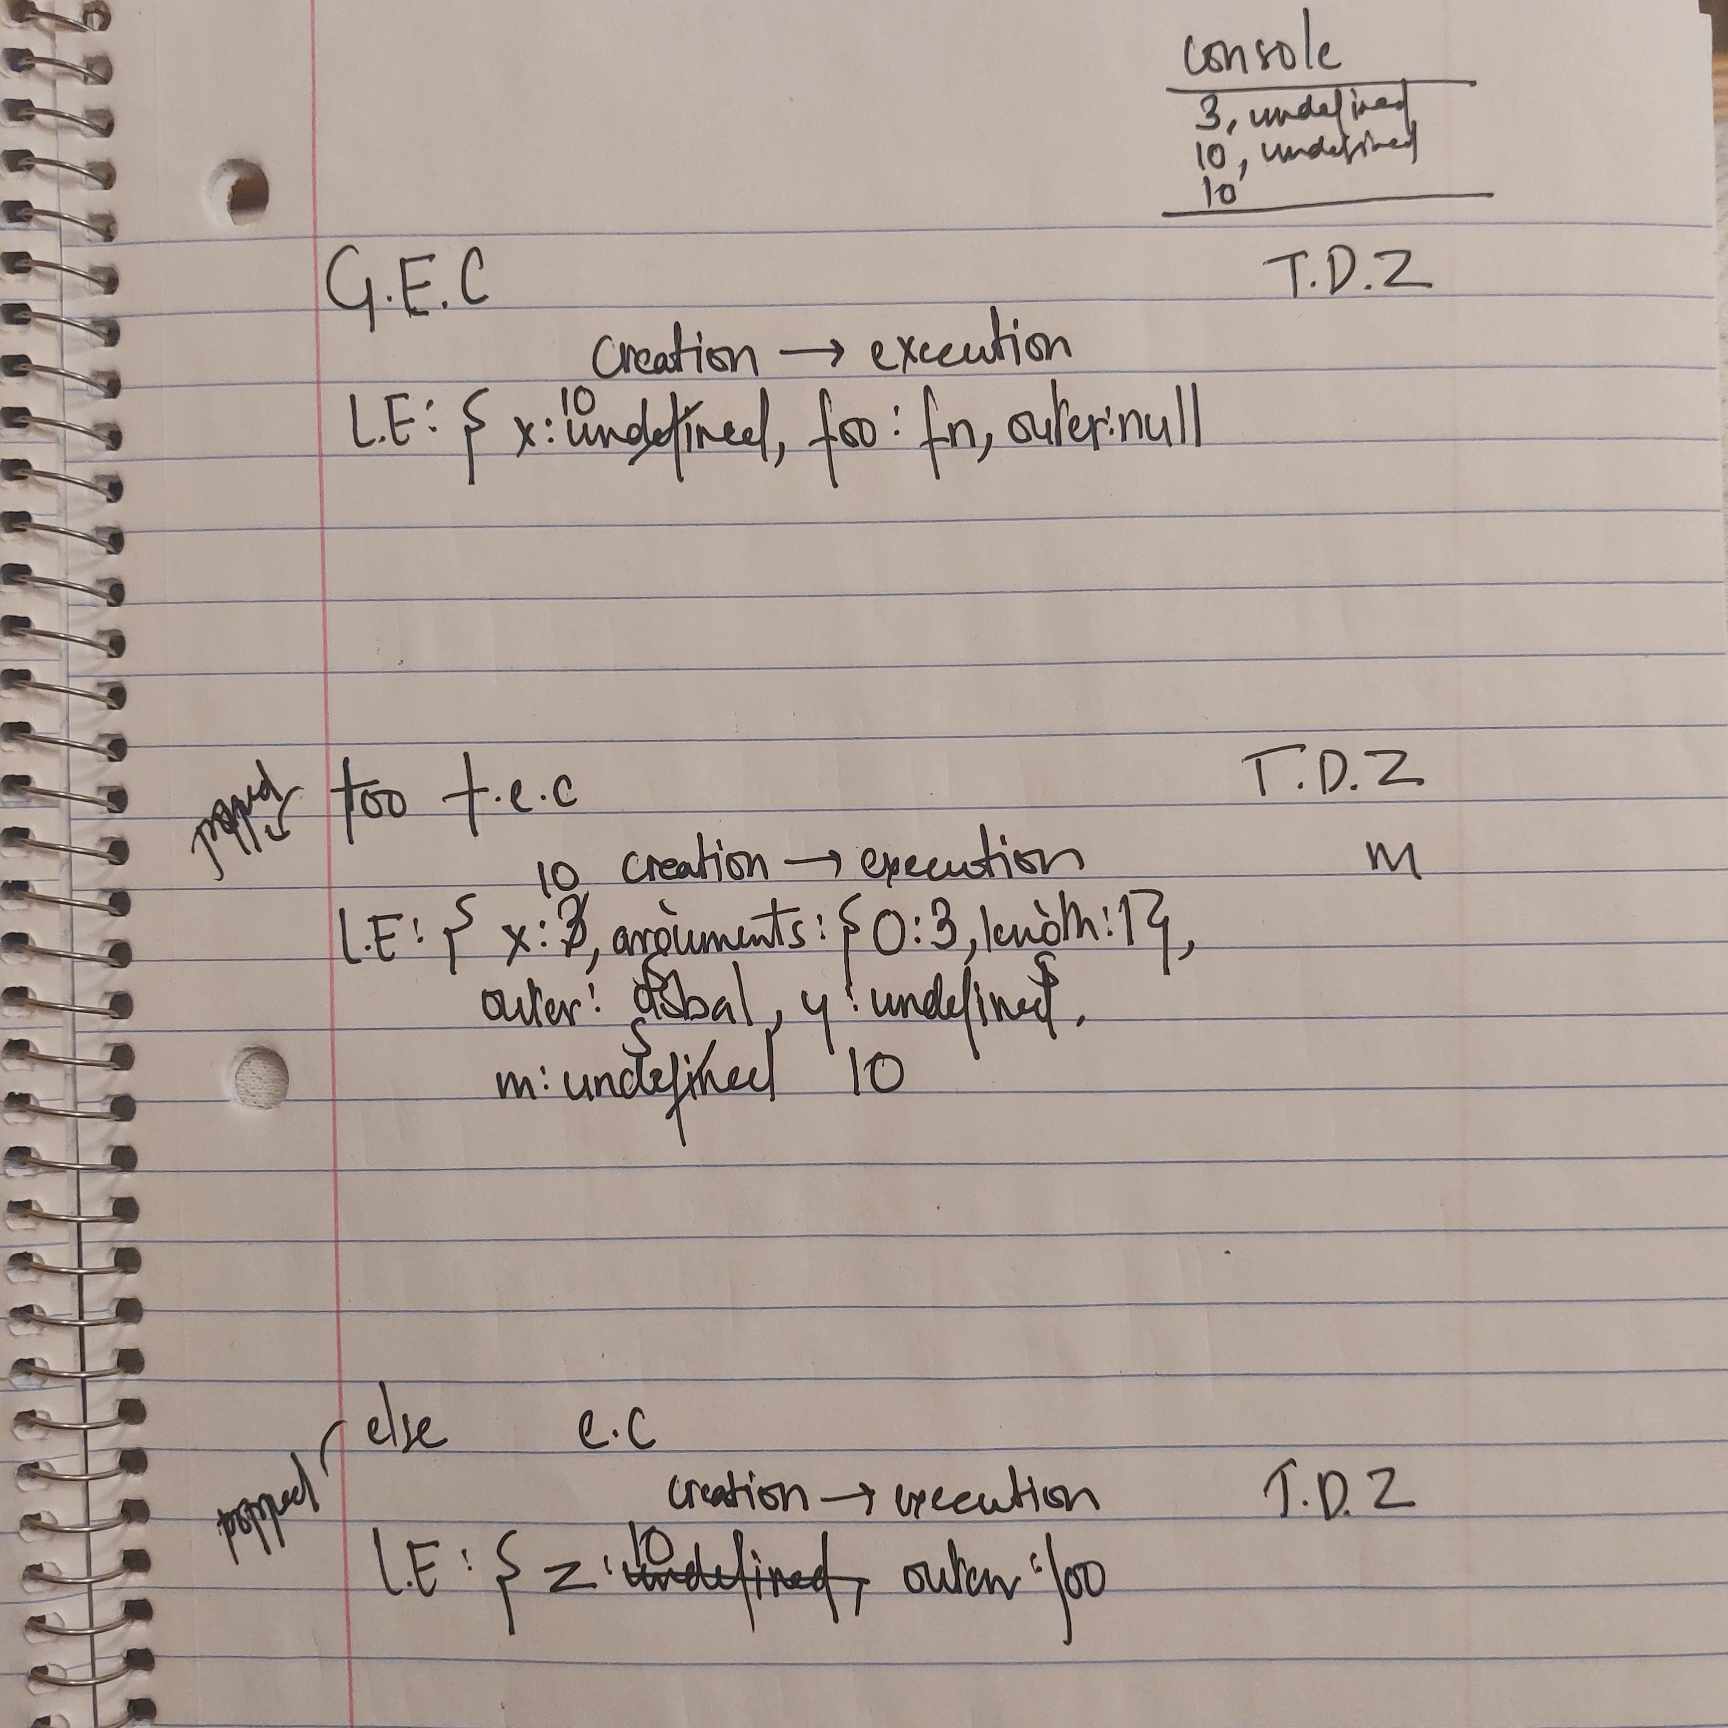 console
3, undefined
10, undefined
10
G.E.C T.D.Z
creation → execution
10
L.E: { x: undefined, foo: fn, outer:null
popped foo f.e.c T.D.Z
10 creation → execution m
L.E: { x: 3, arguments: { 0:3, length:1},
outer: global, y: undefined,
m: undefined 10
else e.c
popped creation → execution T.D.Z
10
L.E: { z: undefined, outer: foo